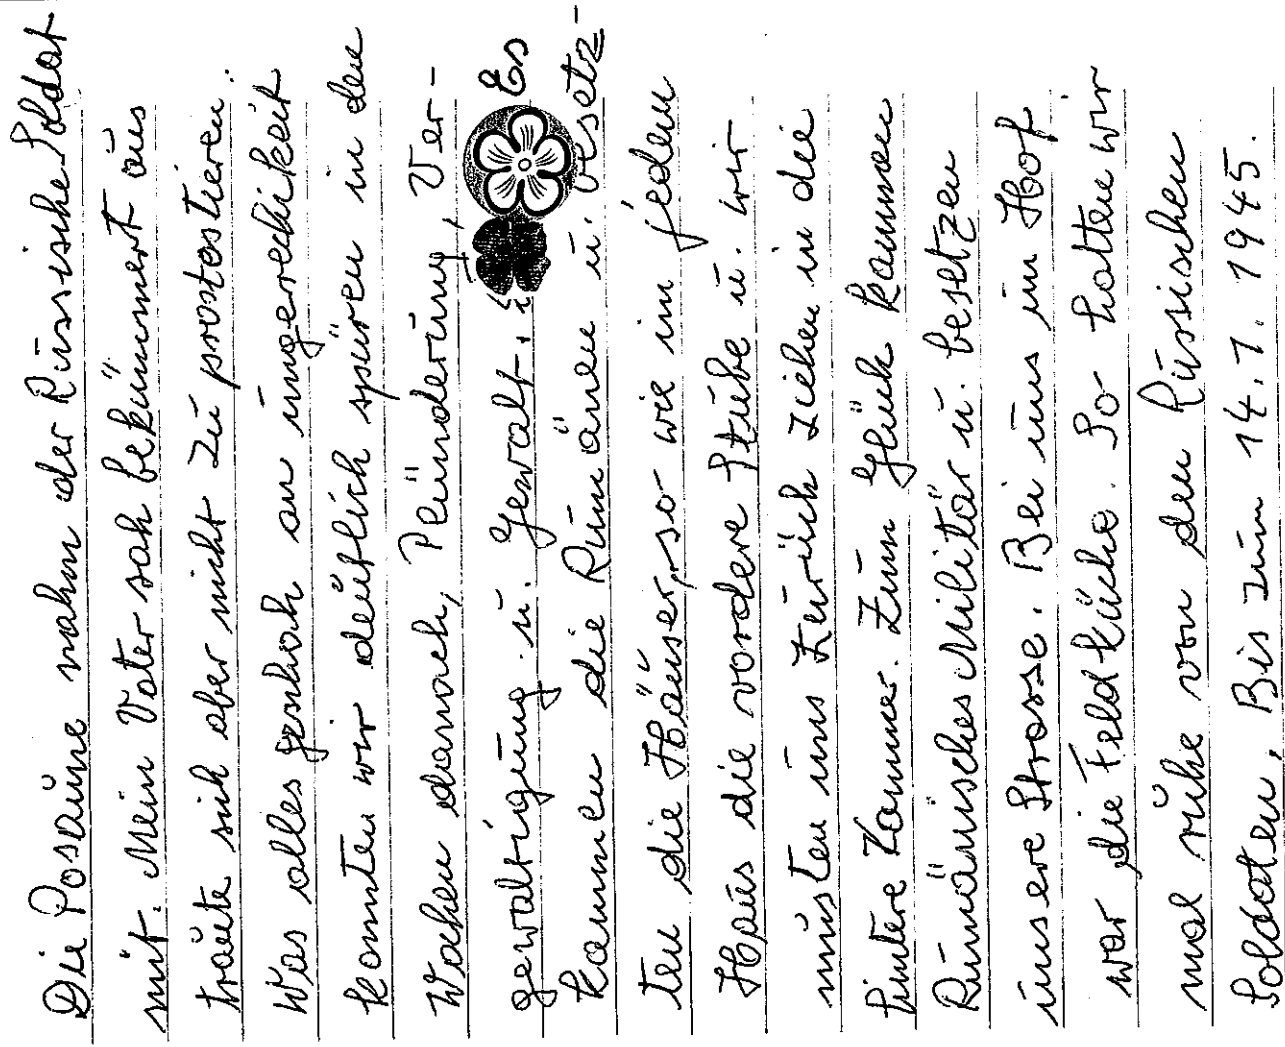 Die Posaune nahm der Russische Soldat
mit. Mein Vater sah bekümmert aus
traute sich aber nicht zu prostestieren.
Was alles geschah an ungerechikeit
konnten wir deutlich spüren in den
Wochen danach, Plünderung, Ver-
gewaltigung u. Gewalt. Es
kammen die Rumänen u. besetz-
ten die Häuser, so wie im jedem
Haus die vordere Stube u. wir
musten uns Zurück ziehen in die
hintere Kammer. Zum Glück kammen
Rumänisches Militär u. besetzen
unsere Strasse. Bei uns im Hof
war die Feldküche. So hatten wir
mal ruhe von den Russischen
Soldaten, Bis zum 14.1.1945.